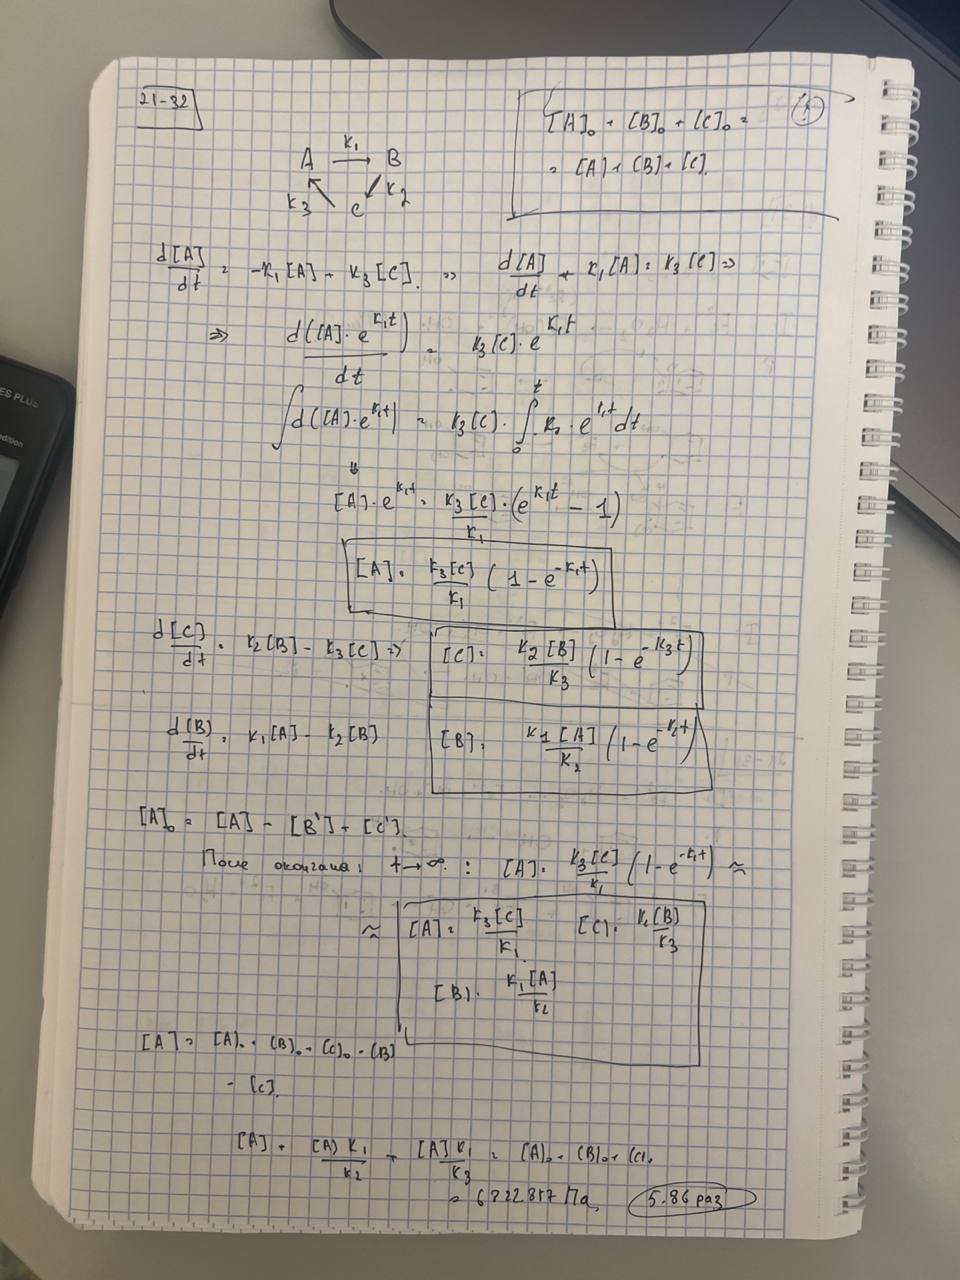 21-32
[A]₀ + [B]₀ + [C]₀ =
= [A] + [B] + [C].
(!)
A —k₁→ B
k₃ C k₂
d[A]/dt = -k₁[A] + k₃[C]. => d[A]/dt + k₁[A] = k₃[C] =>
=> d([A]·e^(k₁t))/dt = k₃[C]·e^(k₁t)
∫d([A]·e^(k₁t)) = k₃[C]·∫₀ᵗ · e^(k₁t)dt
⇓
[A]·e^(k₁t) = k₃[C]/k₁ · (e^(k₁t) - 1)
[A] = k₃[C]/k₁ (1 - e^(-k₁t))
d[C]/dt = k₂[B] - k₃[C] => [C] = k₂[B]/k₃ (1 - e^(-k₃t))
d[B]/dt = k₁[A] - k₂[B] [B] = k₁[A]/k₂ (1 - e^(-k₂t))
[A]₀ = [A] - [B'] + [C'].
После t→∞ : [A] = k₃[C]/k₁ (1 - e^(-k₁t)) ≈
≈ [A] = k₃[C]/k₁. [C] = k₂[B]/k₃
[B] = k₁[A]/k₂
[A] = [A]₀ + [B]₀ + [C]₀ - [B]
- [C].
[A] + [A]k₁/k₂ + [A]k₁/k₃ = [A]₀ + [B]₀ + [C]₀
= 6822.857 Па. 5.86 раз